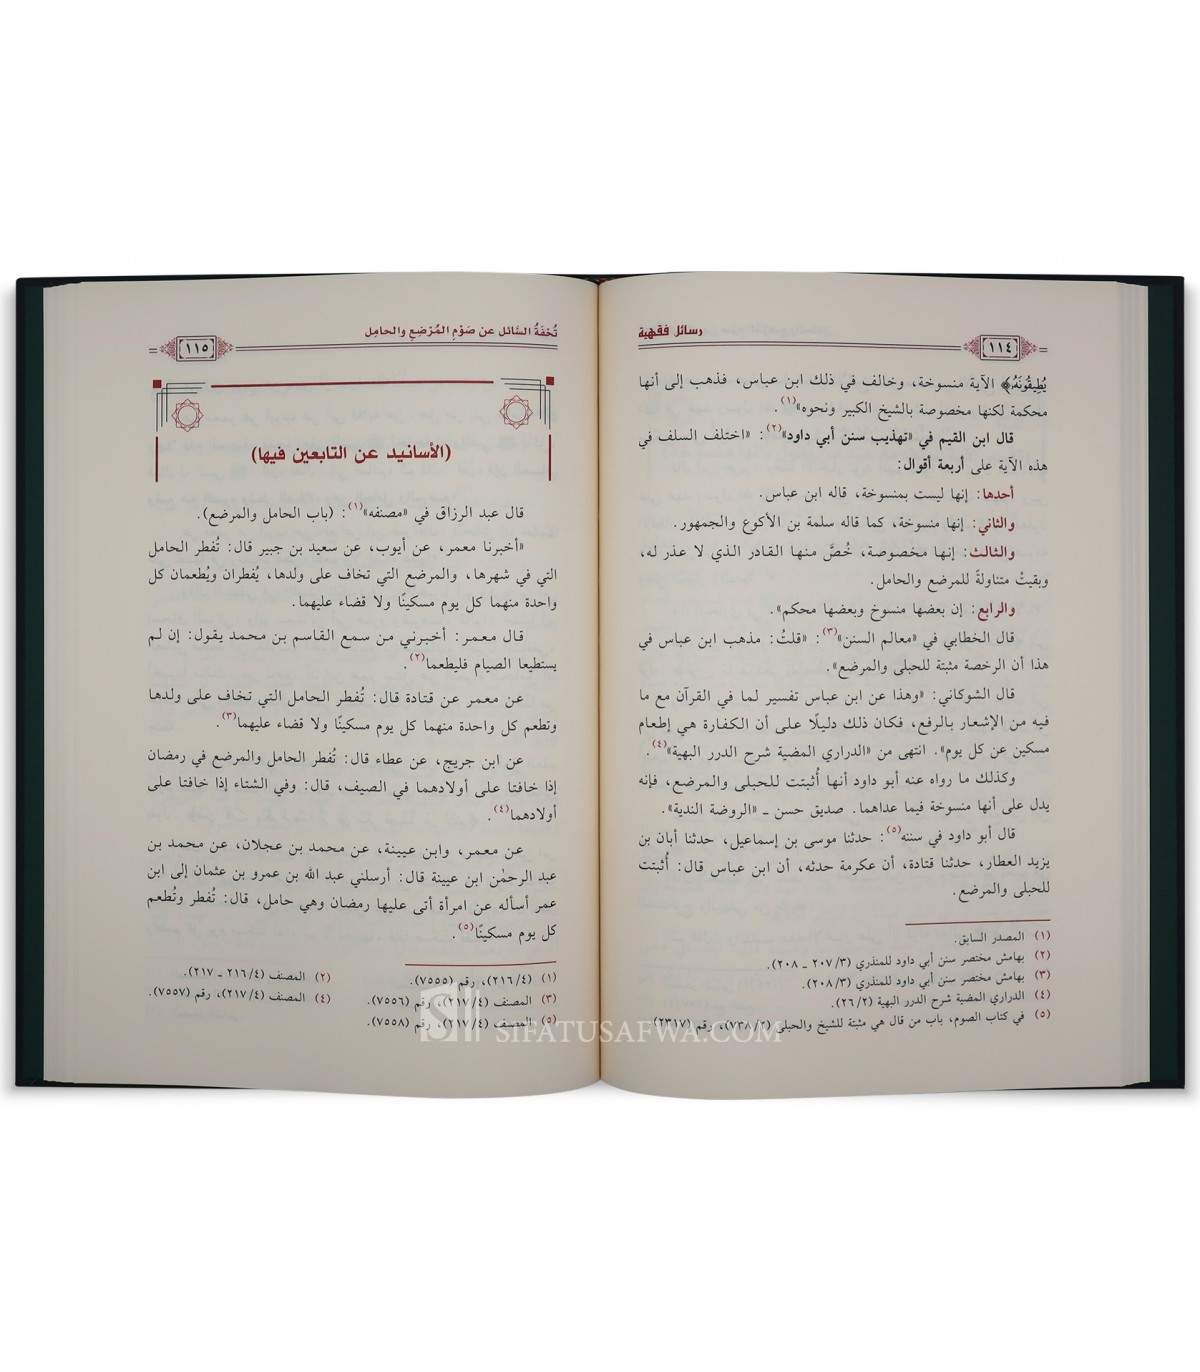 رسائل فقهية
١١٤
يُطِيقُونَهُ﴾ الآية منسوخة، وخالف في ذلك ابن عباس، فذهب إلى أنها
محكمة لكنها مخصوصة بالشيخ الكبير ونحوه»(١).
قال ابن القيم في «تهذيب سنن أبي داود»(٢): «اختلف السلف في
هذه الآية على أربعة أقوال:
أحدها: إنها ليست بمنسوخة، قاله ابن عباس.
والثاني: إنها منسوخة، كما قاله سلمة بن الأكوع والجمهور.
والثالث: إنها مخصوصة، خُصَّ منها القادر الذي لا عذر له،
وبقيتْ متناولةً للمرضع والحامل.
والرابع: إن بعضها منسوخ وبعضها محكم».
قال الخطابي في «معالم السنن»(٣): «قلتُ: مذهب ابن عباس في
هذا أن الرخصة مثبتة للحبلى والمرضع».
قال الشوكاني: «وهذا عن ابن عباس تفسير لما في القرآن مع ما
فيه من الإشعار بالرفع، فكان ذلك دليلًا على أن الكفارة هي إطعام
مسكين عن كل يوم». انتهى من «الدراري المضية شرح الدرر البهية»(٤).
وكذلك ما رواه عنه أبو داود أنها أُثبتت للحبلى والمرضع، فإنه
يدل على أنها منسوخة فيما عداهما. صديق حسن ـ «الروضة الندية».
قال أبو داود في سننه(٥): حدثنا موسى بن إسماعيل، حدثنا أبان بن
يزيد العطار، حدثنا قتادة، أن عكرمة حدثه، أن ابن عباس قال: أُثبتت
للحبلى والمرضع.
(١) المصدر السابق.
(٢) بهامش مختصر سنن أبي داود للمنذري (٣/ ٢٠٧ ـ ٢٠٨).
(٣) بهامش مختصر سنن أبي داود للمنذري (٣/ ٢٠٨).
(٤) الدراري المضية شرح الدرر البهية (٢/ ٢٦).
(٥) في كتاب الصوم، باب من قال هي مثبتة للشيخ والحبلى (٢/ ٧٣٨)، رقم (٢٣١٧).
تُحْفَةُ السَّائل عن صَوْمِ المُرْضِعِ والحامِلِ
١١٥
(الأسانيد عن التابعين فيها)
قال عبد الرزاق في «مصنفه»(١): (باب الحامل والمرضع).
«أخبرنا معمر، عن أيوب، عن سعيد بن جبير قال: تُفطر الحامل
التي في شهرها، والمرضع التي تخاف على ولدها، يُفطران ويُطعمان كل
واحدة منهما كل يوم مسكينًا ولا قضاء عليهما.
قال معمر: أخبرني من سمع القاسم بن محمد يقول: إن لم
يستطيعا الصيام فليطعما(٢).
عن معمر عن قتادة قال: تُفطر الحامل التي تخاف على ولدها
وتطعم كل واحدة منهما كل يوم مسكينًا ولا قضاء عليهما(٣).
عن ابن جريج، عن عطاء قال: تُفطر الحامل والمرضع في رمضان
إذا خافتا على أولادهما في الصيف، قال: وفي الشتاء إذا خافتا على
أولادهما(٤).
عن معمر، وابن عيينة، عن محمد بن عجلان، عن محمد بن
عبد الرحمٰن ابن عيينة قال: أرسلني عبد الله بن عمرو بن عثمان إلى ابن
عمر أسأله عن امرأة أتى عليها رمضان وهي حامل، قال: تُفطر وتُطعم
كل يوم مسكينًا(٥).
(١) (٤/ ٢١٦)، رقم (٧٥٥٥). (٢) المصنف (٤/ ٢١٦ ـ ٢١٧).
(٣) المصنف (٤/ ٢١٧)، رقم (٧٥٥٦). (٤) المصنف (٤/ ٢١٧)، رقم (٧٥٥٧).
(٥) المصنف (٤/ ٢١٧)، رقم (٧٥٥٨).
SIFATUSAFWA.COM